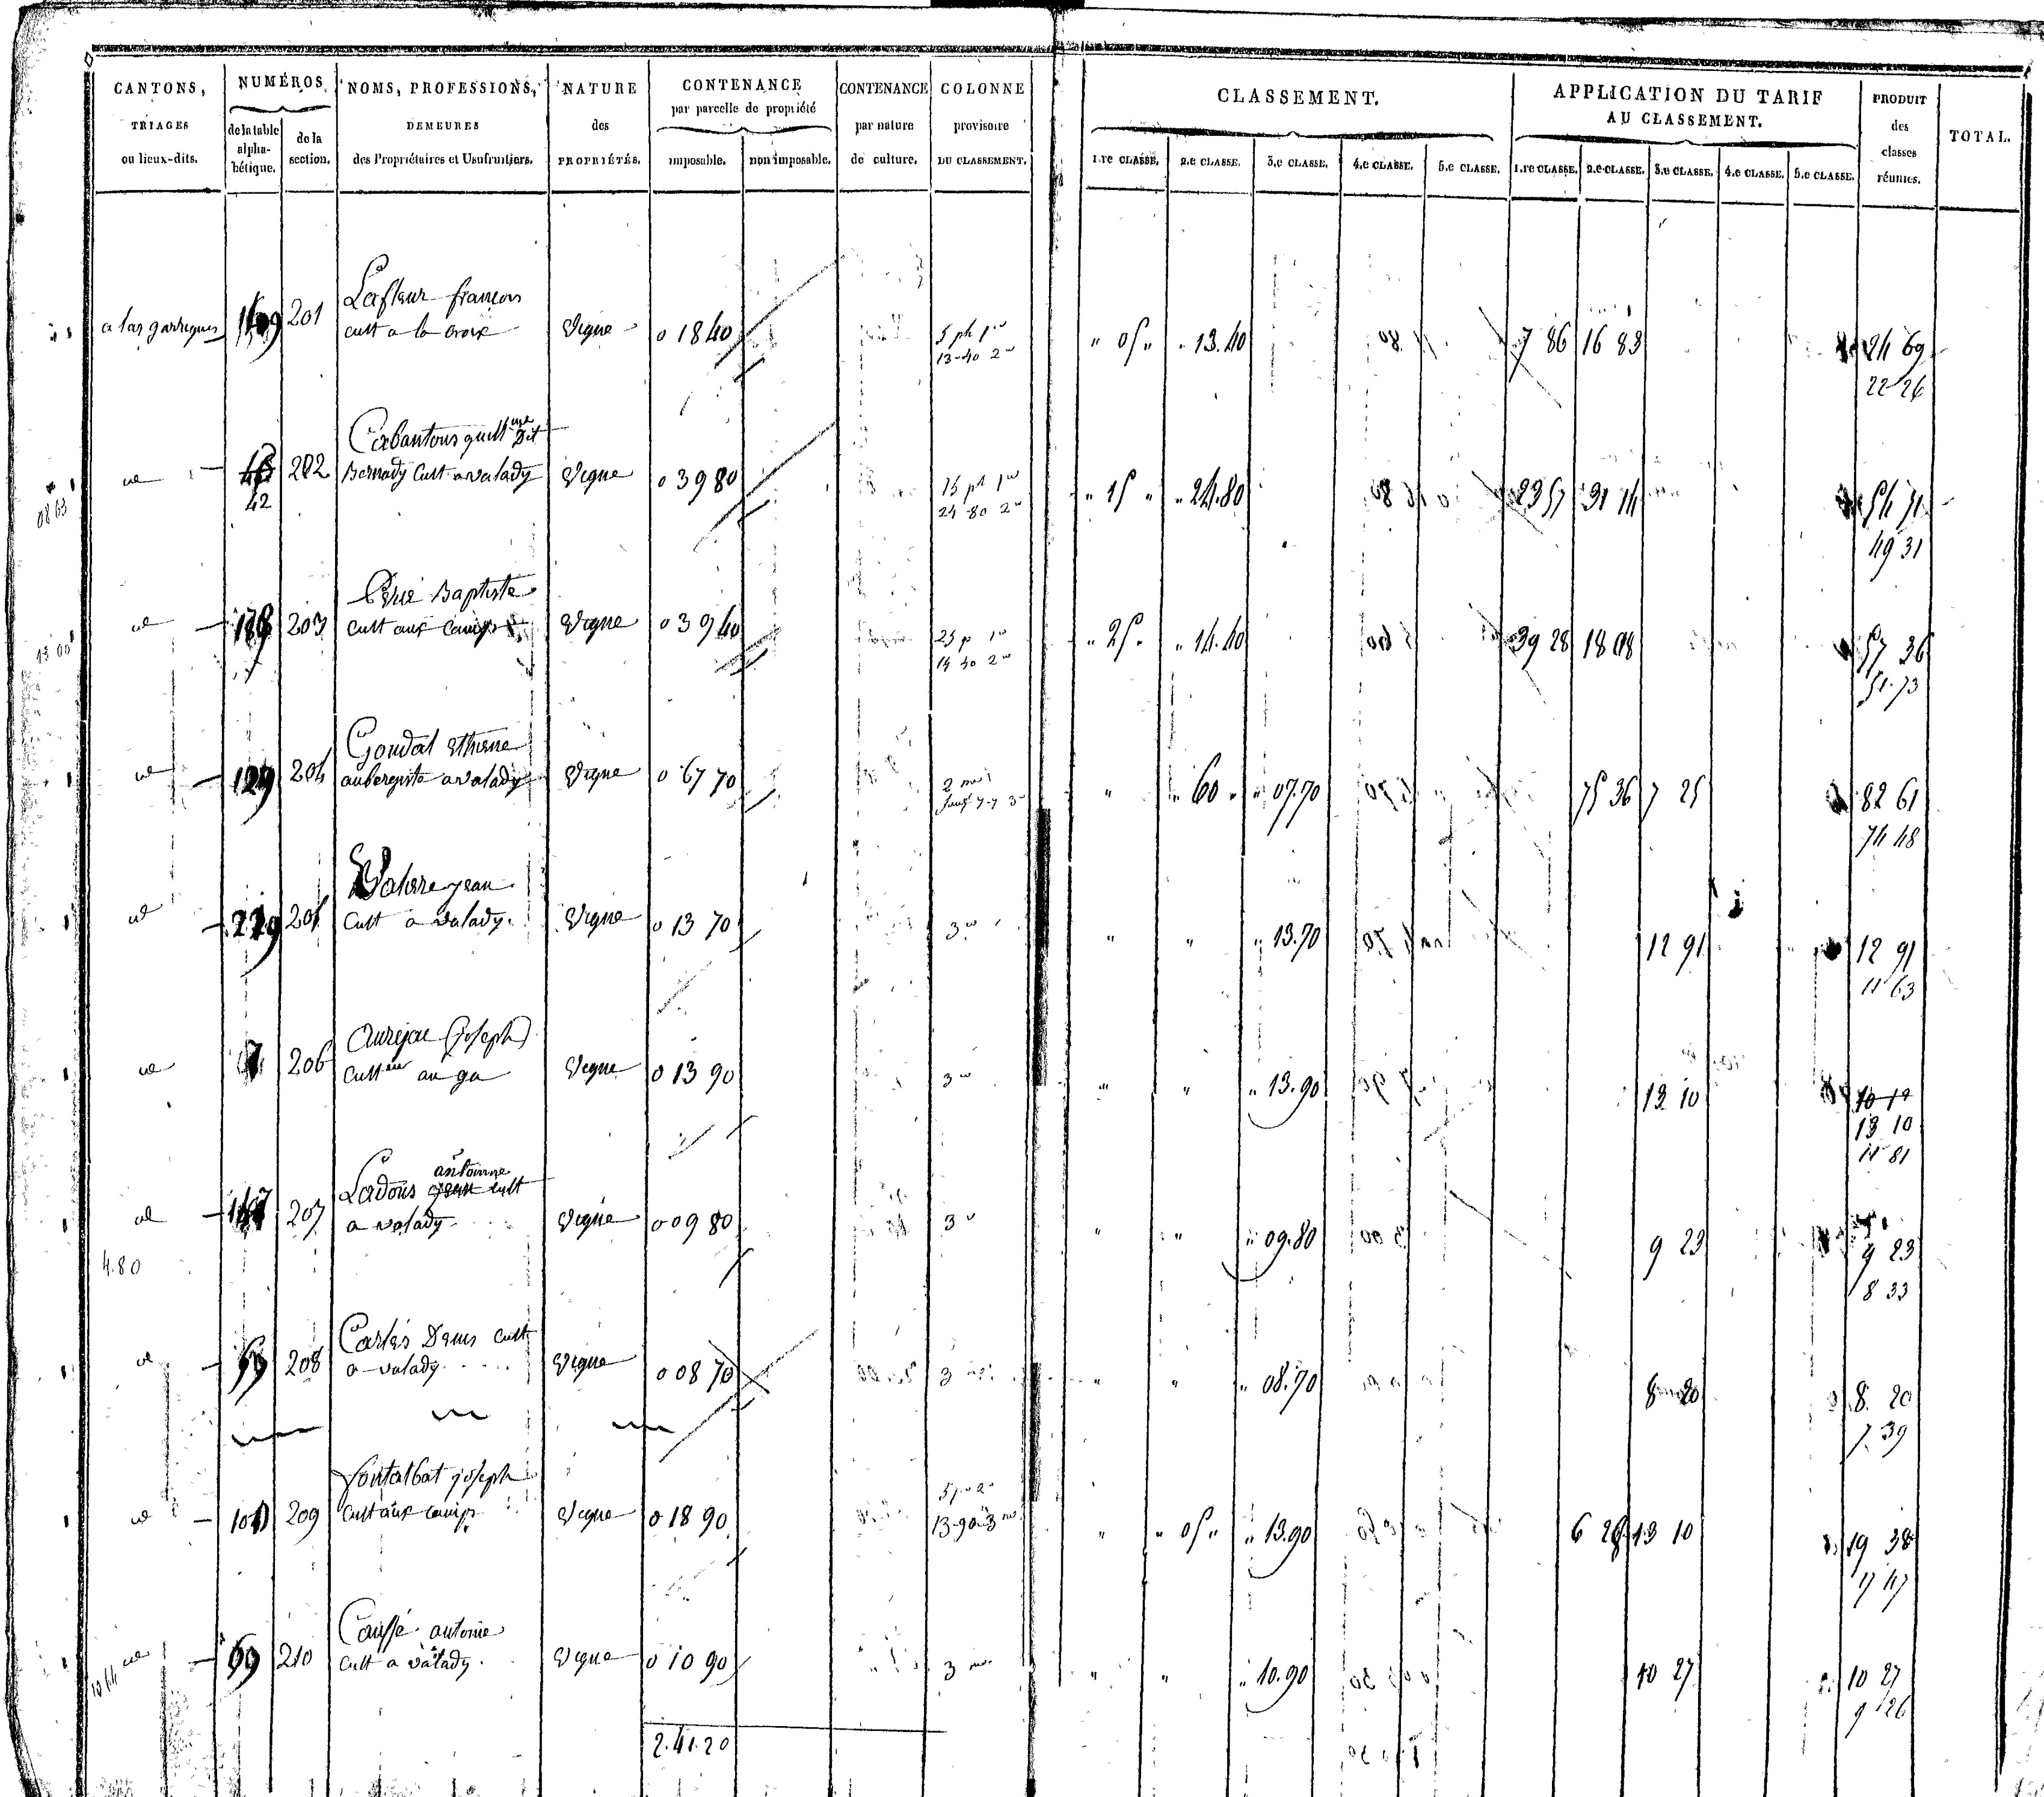 CANTONS,
TRIAGES
ou lieux-dits.
NUMÉROS
de la table
alpha-
bétique.
de la
section.
NOMS, PROFESSIONS,
DEMEURES
des Propriétaires et Usufruitiers.
NATURE
des
PROPRIÉTÉS.
CONTENANCE
par parcelle de propriété
imposable.
non imposable.
CONTENANCE
par nature
de culture.
COLONNE
provisoire
DU CLASSEMENT.
CLASSEMENT.
1.re CLASSE.
2.e CLASSE.
3.e CLASSE.
4.e CLASSE.
5.e CLASSE.
APPLICATION DU TARIF
AU CLASSEMENT.
1.re CLASSE.
2.e CLASSE.
3.e CLASSE.
4.e CLASSE.
5.e CLASSE.
PRODUIT
des
classes
réunies.
TOTAL.
Lafleur francois
a las garrigues 201 cult a la croix Vigne 0 18 40 5 ph 1re " 05 " " 13.40 7 86 16 83 24 69
13-40 2e 22 26
Cabantous guill.me Dit
id 202 Bernady Cult a valady Vigne 0 39 80 15 ph 1re " 15 " " 24.80 23 57 31 14 54 71
42 24-80 2e 49 31
Périé Baptiste
id 178 203 cult aux camps Vigne 0 39 40 25 p 1re " 25 " " 14.40 39 28 18 08 57 36
14 40 2e 51.73
Goudal Etiene
id 129 204 aubergiste a valady Vigne 0 67 70 " " 60 " " 07.70 75 36 7 25 82 61
74 48
Valiere jean
id 229 205 Cult a valady. Vigne 0 13 70 3e " " " 13.70 12 91 12 91
11 63
Aurejac (joseph)
id 7 206 Cult.eur au ga Vigne 0 13 90 3e " " " 13.90 13 10 10 10
13 10
11 81
antoinne
Ladous jean cult
id 147 207 a valady Vigne 0 09 80 3e " " " 09.80 9 23 9 23
4.80 8 33
Carles Denis cult
id 208 a valady Vigne 0 08 70 3e " " " 08.70 8 20 8. 20
7.39
fontalbat joseph
id 209 Cult aux camps Vigne 0 18 90 5 p 2e " " 05 " " 13.90 6 28 13 10 19 38
13-90 3e 17 47
Caussé antoine
id 69 210 Cult a valady. Vigne 0 10 90 3e " " " 10.90 10 27 10 27
9 26
2.41.20